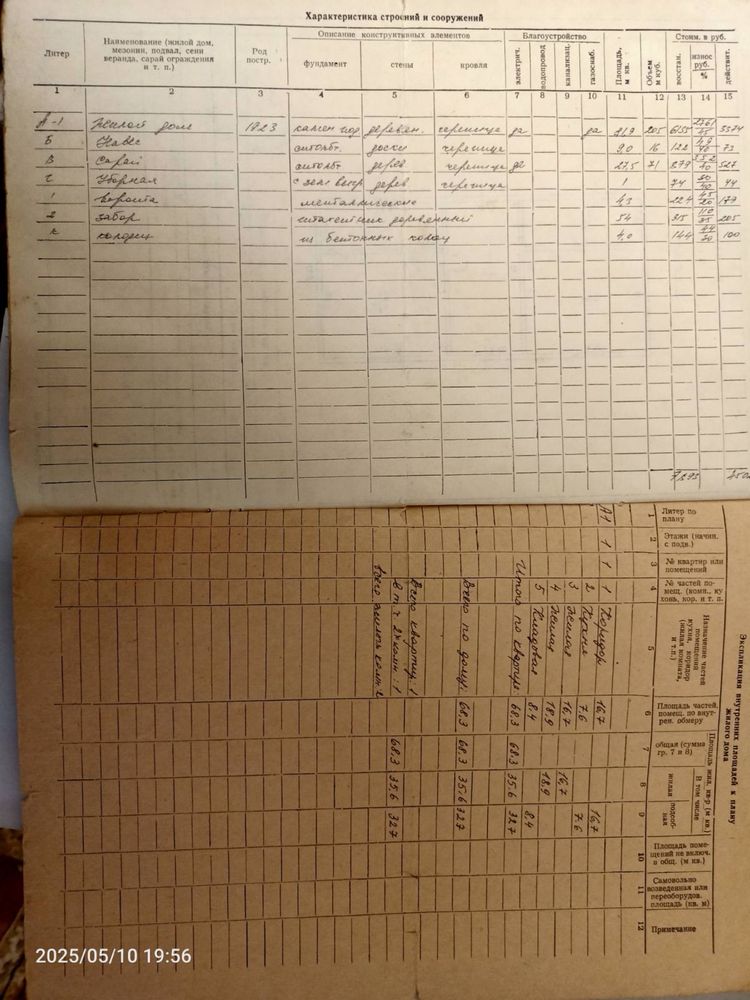 Характеристика строений и сооружений
Литер
Наименование (жилой дом,
мезонин, подвал, сени
веранда, сарай ограждения
и т. п.)
Род
постр.
Описание конструктивных элементов
фундамент стены кровля
Благоустройство
электрич. водопровод канализац. газоснаб.
Площадь,
м кв.
Объем
м куб.
Стоим. в руб.
восстан. износ
руб.
%
действит.
1 2 3 4 5 6 7 8 9 10 11 12 13 14 15
А-1 Жилой дом 1923 деревян. черепица да да 205 6135 2761/45 3374
Б Навес доски черепица 9,0 16 122 49/40 73
В Сарай дерев черепица да 27,5 71 879 352/40 527
Г Уборная дерев черепица 1 74 30/40 44
1 ворота металлические 4,3 224 45/20 179
2 забор штакетник деревянный 54 315 110/35 205
К колодец из бетонных колец 4,0 144 44/30 100
7893
Экспликация внутренних площадей к плану
жилого дома
Литер по
плану
Этажи (начин.
с подв.)
№ квартир или
помещений
№ частей по-
мещ. (комн., ку-
хонь, кор. и т. п.
Назначение частей
помещений
кухня, коридор
(жилая комната,
и т.п.)
Площадь частей
помещ. по внут-
рен. обмеру
Площадь жил. кв-р (м кв.)
общая (сумма
гр. 7 и 8)
В том числе
жилая
подсоб-
ная
Площадь поме-
щений не включ.
в общ. (м кв.)
Самовольно
возведенная или
переоборудов.
площадь (кв. м)
Примечание
1 2 3 4 5 6 7 8 9 10 11 12
А1 1 1 1 Коридор 16,7 16,7
2 Кухня 7.6 7.6
3 Жилая 16,7 16,7
4 Жилая 18,9 18,9
5 Кладовая 8.4 8.4
Итого по квартире 68.3 68.3 35.6 32.7
Всего по дому: 68.3 68.3 35.6 32.7
Всего квартир: 1 68.3 35.6 32.7
в т. ч. 2х комн.: 1
Всего жилых комн: 2
2025/05/10 19:56